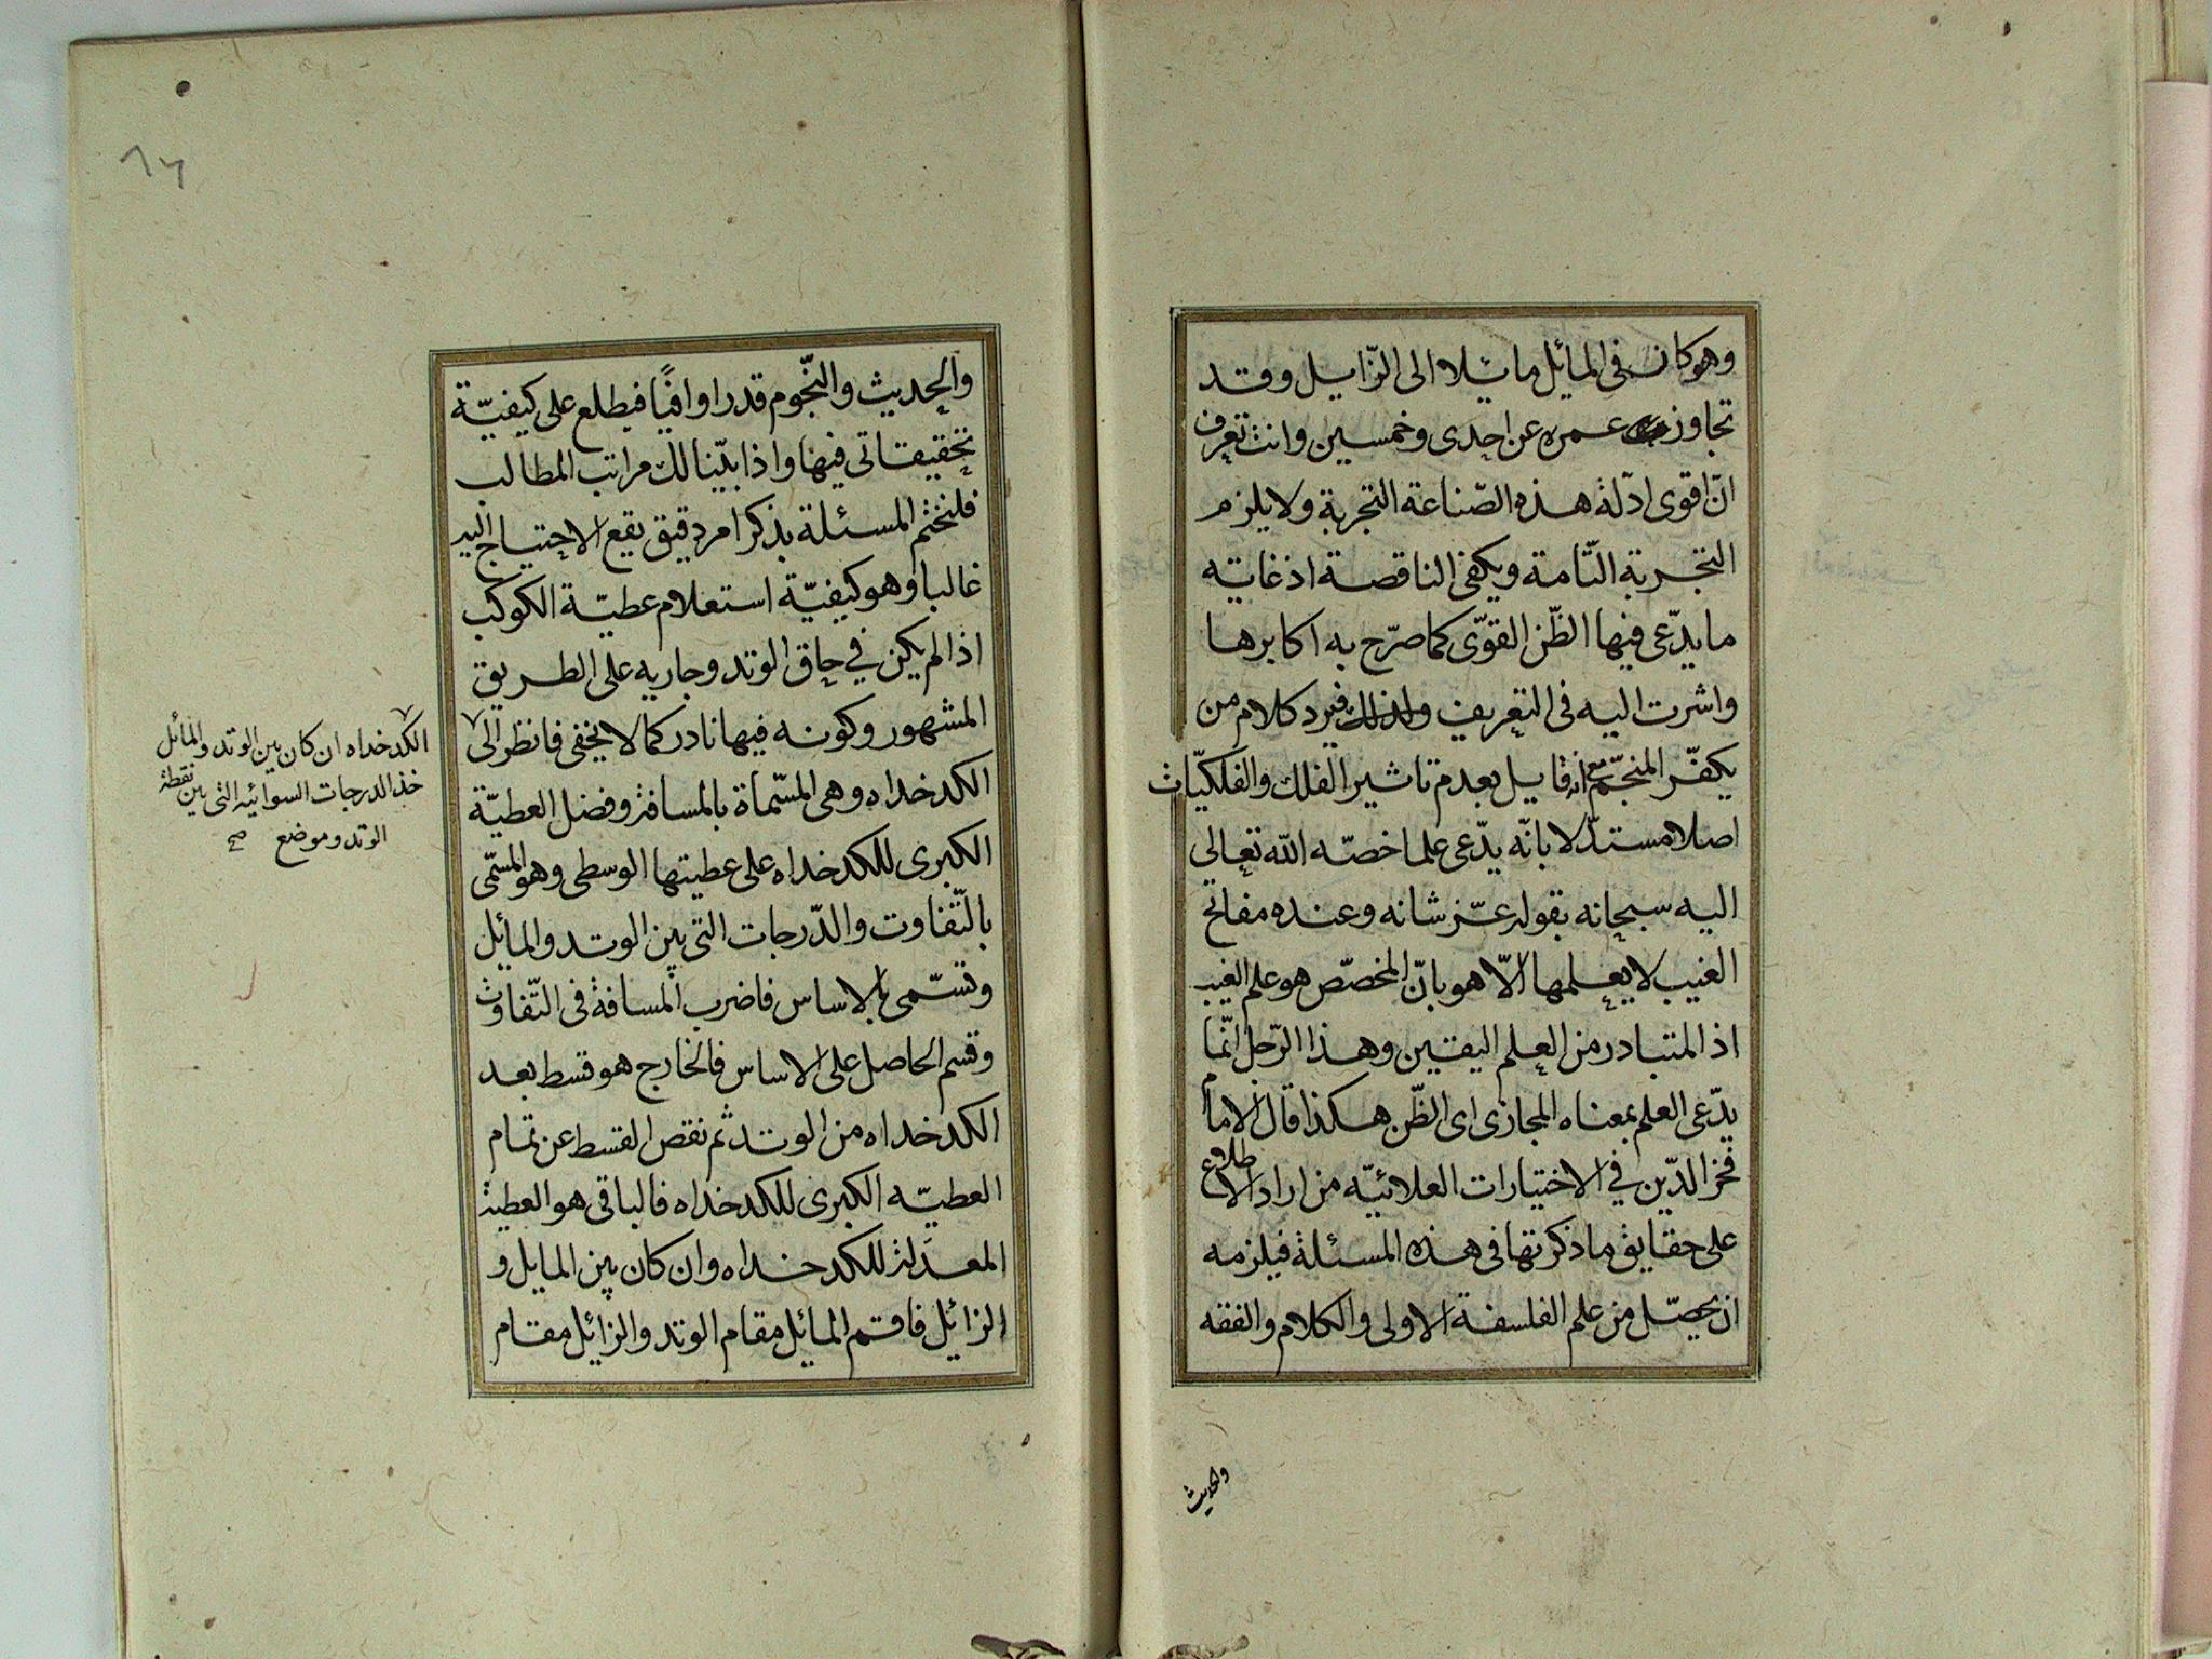 وهو كان في المائل مائلا الى الزّايل وقد
تجاوز عمره عن احدى وخمسين وانت تعرف
انّ اقوى ادلّة هذه الصّناعة التجربة ولا يلزم
التجربة التّامة ويكفى الناقصة اذ غايته
ما يدّعى فيها الظّن القوّى كما صرّح به اكابرها
واشرت اليه فى التعريف ولذلك فيرد كلام من
يكفّر المنجّم مع انه قايل بعدم تاثير الفلك والفلكيّات
اصلا مستدّلا بانّه يدّعى علما خصّه الله تعالى
اليه سبحانه بقوله عزّ شانه وعنده مفاتح
الغيب لا يعلمها الّا هو بانّ المخصّص هو علم الغيب
اذ المتبادر من العلم اليقين وهذا الرّجل انّما
يدّعى العلم بمعناه المجازى اى الظّن هكذا قال الامام
فخر الدّين في الاختيارات العلائيّه من اراد الاطلاع
على حقايق ما ذكرتها فى هذه المسئلة فيلزمه
ان يحصّل من علم الفلسفة الاولى والكلام والفقه
والحديث
٦٢
والحديث والنّجوم قدرا وافيًا فيطلع على كيفيّة
تحقيقاتى فيها واذا بيّنا لك مراتب المطالب
فلنختم المسئلة بذكر امر دقيق يقع الاحتياج اليه
غالبا وهو كيفيّة استعلام عطيّة الكوكب
اذا لم يكن في حاق الوتد وجاريه على الطريق
المشهور وكونه فيها نادر كما لا يخفى فانظر الى
الكدخداه وهى المسّماة بالمسافة وفضل العطيّة
الكبرى للكدخداه على عطيتها الوسطى وهو المسّمى
بالتّفاوت والدّرجات التى بين الوتد والمايل
وتسّمى بالاساس فاضرب المسافة فى التّفاوت
وقسم الحاصل على الاساس فالخارج هو قسط بعد
الكدخداه من الوتد ثم نقص القسط عن تمام
العطيّه الكبرى للكدخداه فالباقى هو العطية
المعدلة للكدخداه وان كان بين المايل و
الزائل فاقم المائل مقام الوتد والزائل مقام
الكدخداه ان كان بين الوتد والمائل
خذ الدرجات السوائيه التى بين نقطة
الوتد وموضع صح